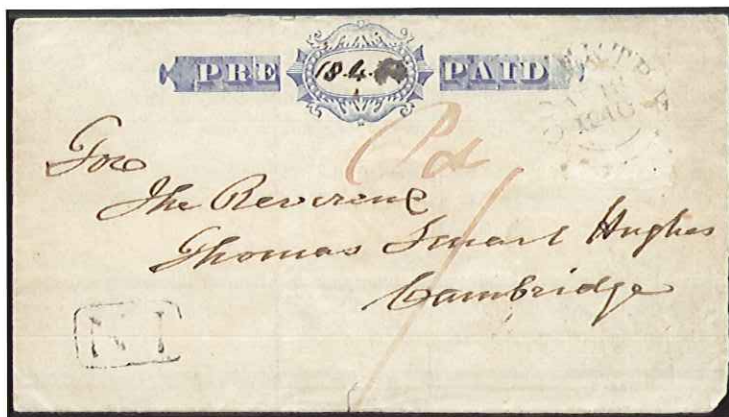 PRE PAID
184
Pd
For
The Reverend
Thomas Smart Hughes
Cambridge
1
No 1